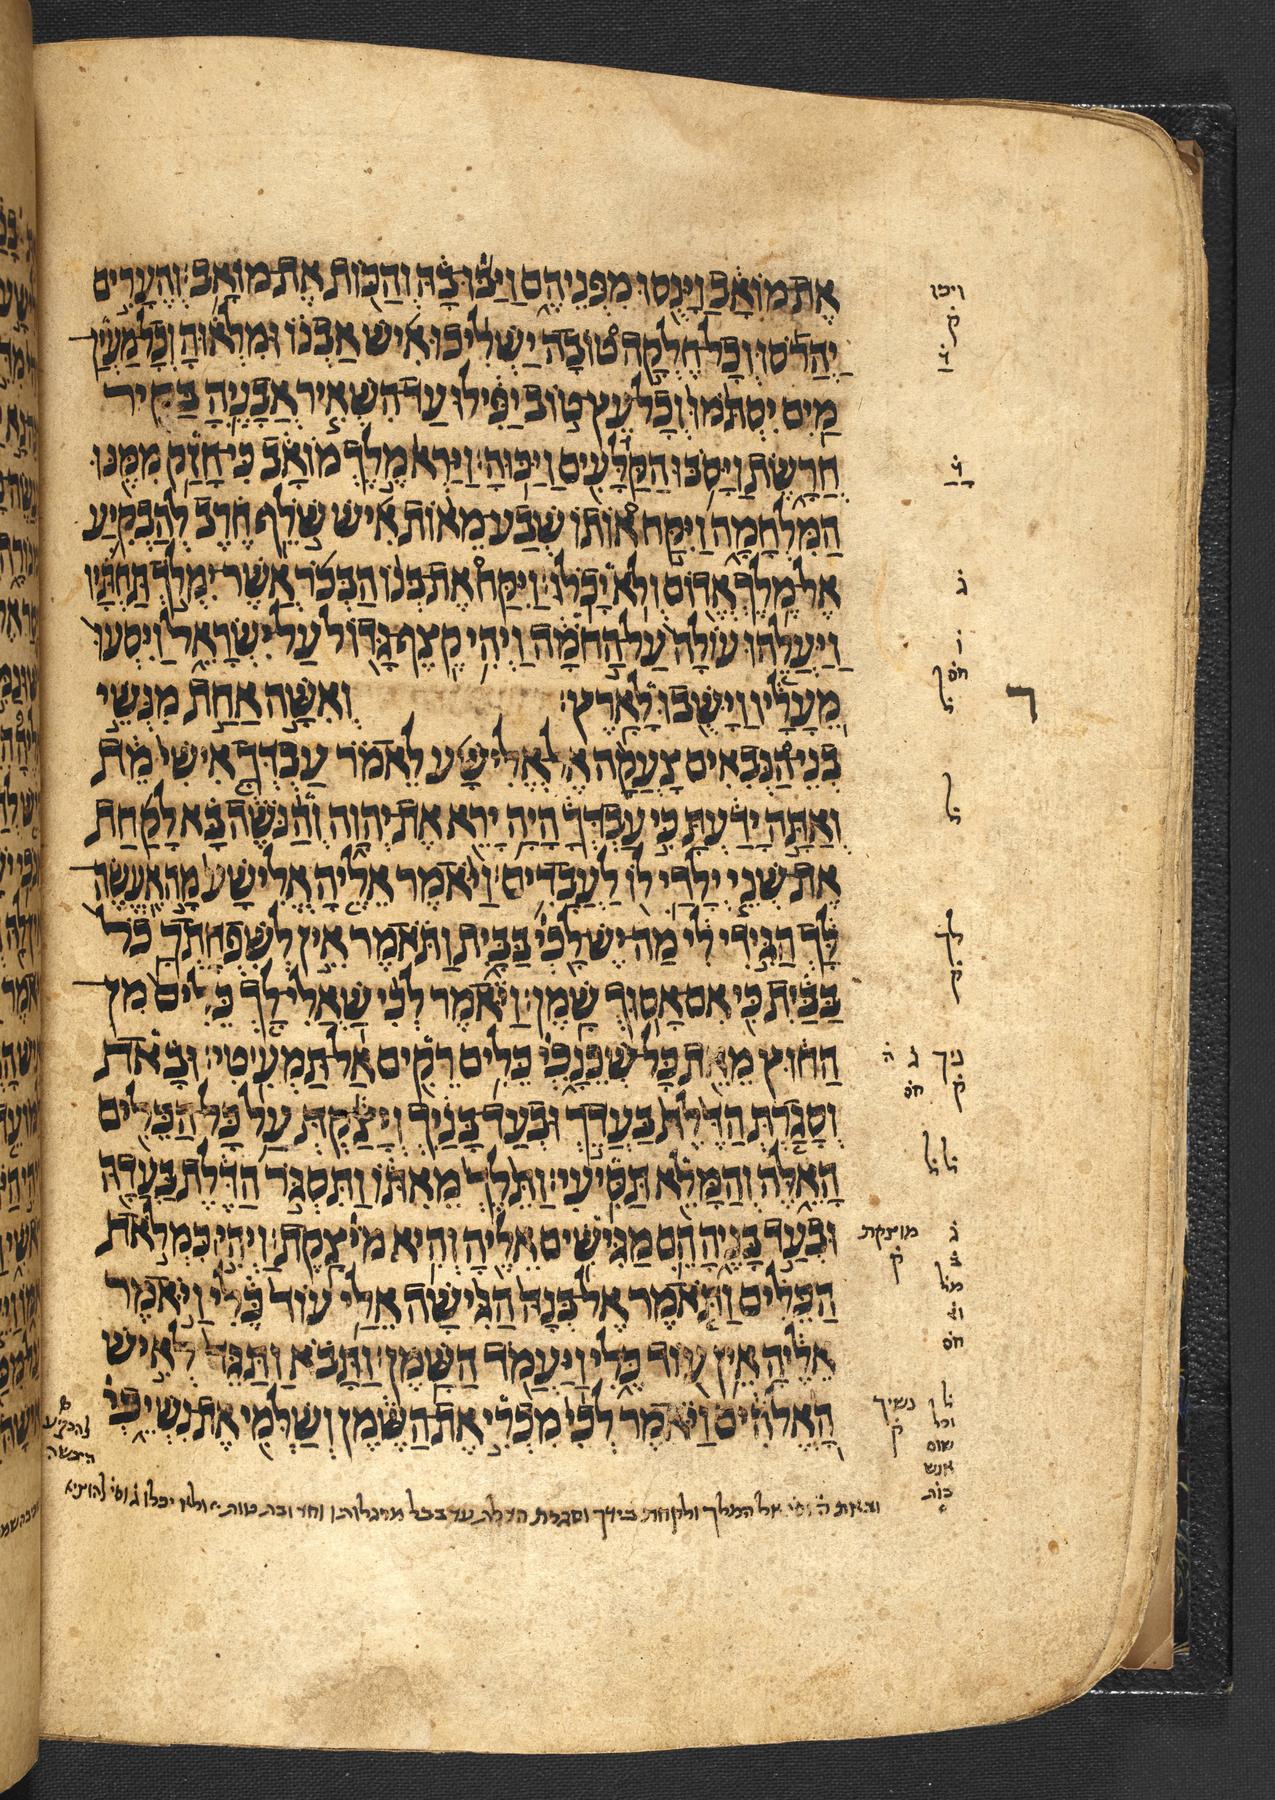 את מואב וינסו מפניהם ויבו בה והכות את מואב׃ והערים
יהרסו וכל חלקה טובה ישליכו איש אבנו ומלאוה וכל מעין
מים יסתמו וכל עץ טוב יפילו עד השאיר אבניה בקיר
חרשת ויסבו הקלעים ויכוה׃ וירא מלך מואב כי חזק ממנו
המלחמה ויקח אותו שבע מאות איש שלף חרב להבקיע
אל מלך אדום ולא יכלו׃ ויקח את בנו הבכר אשר ימלך תחתיו
ויעלהו עולה על החמה ויהי קצף גדול על ישראל ויסעו
מעליו וישבו לארץ׃ ואשה אחת מנשי
בני הנביאים צעקה אל אלישע לאמר עבדך אישי מת
ואתה ידעת כי עבדך היה ירא את יהוה והנשה בא לקחת
את שני ילדי לו לעבדים׃ ויאמר אליה אלישע מה אעשה
לך הגידי לי מה יש לכי בבית ותאמר אין לשפחתך כל
בבית כי אם אסוך שמן׃ ויאמר לכי שאלי לך כלים מן
החוץ מאת כל שכנכי כלים רקים אל תמעיטי׃ ובאת
וסגרת הדלת בעדך ובעד בניך ויצקת על כל הכלים
האלה והמלא תסיעי׃ ותלך מאתו ותסגר הדלת בעדה
ובעד בניה הם מגישים אליה והיא מיצקת׃ ויהי כמלאת
הכלים ותאמר אל בנה הגישה אלי עוד כלי ויאמר
אליה אין עוד כלי ויעמד השמן׃ ותבא ותגד לאיש
האלהים ויאמר לכי מכרי את השמן ושלמי את נשיכי
ויכו
ק
ג
ו
חס
ר
ל
לך
ק
ניך ג
ק חס
ל ל
מוצקת ג
ק
מל
חס
נשיך ל
ק וכל
שום
אנש